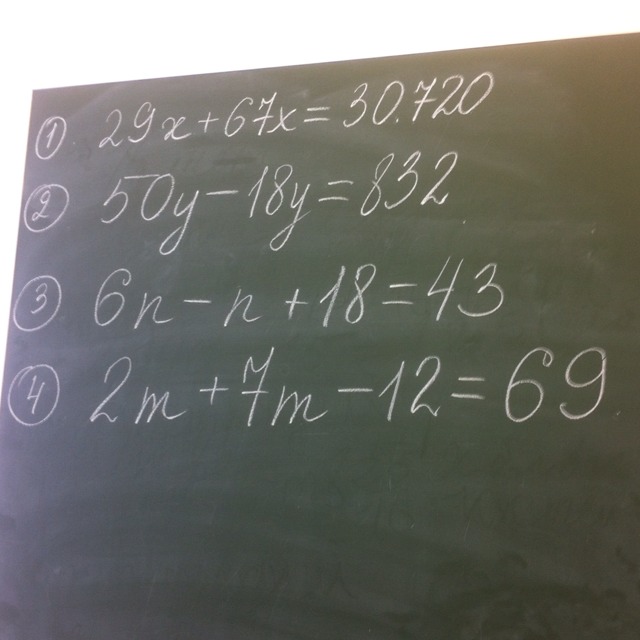 ① 29x+67x=30.720
② 50y-18y=832
③ 6n-n+18=43
④ 2m+7m-12=69